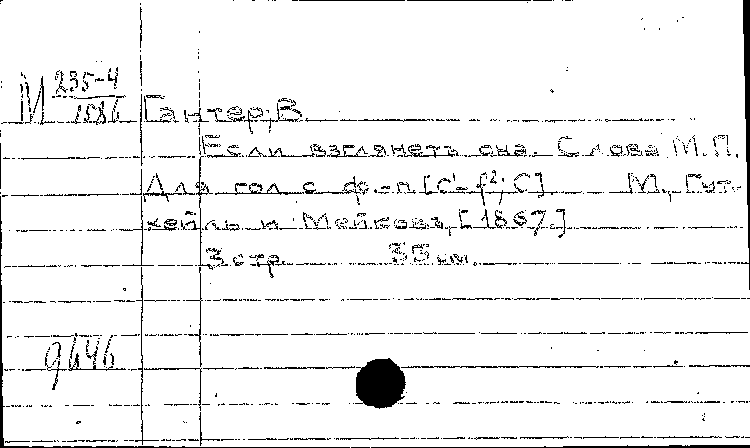 М 235-4
1886 Гантер, В.
Если взглянетъ она. Слова М.П.
Для гол с ф.-п. [C'-f²; C]. М., Гут-
хейль и Мейковъ, [1867.]
3 стр. 33 см.
9646